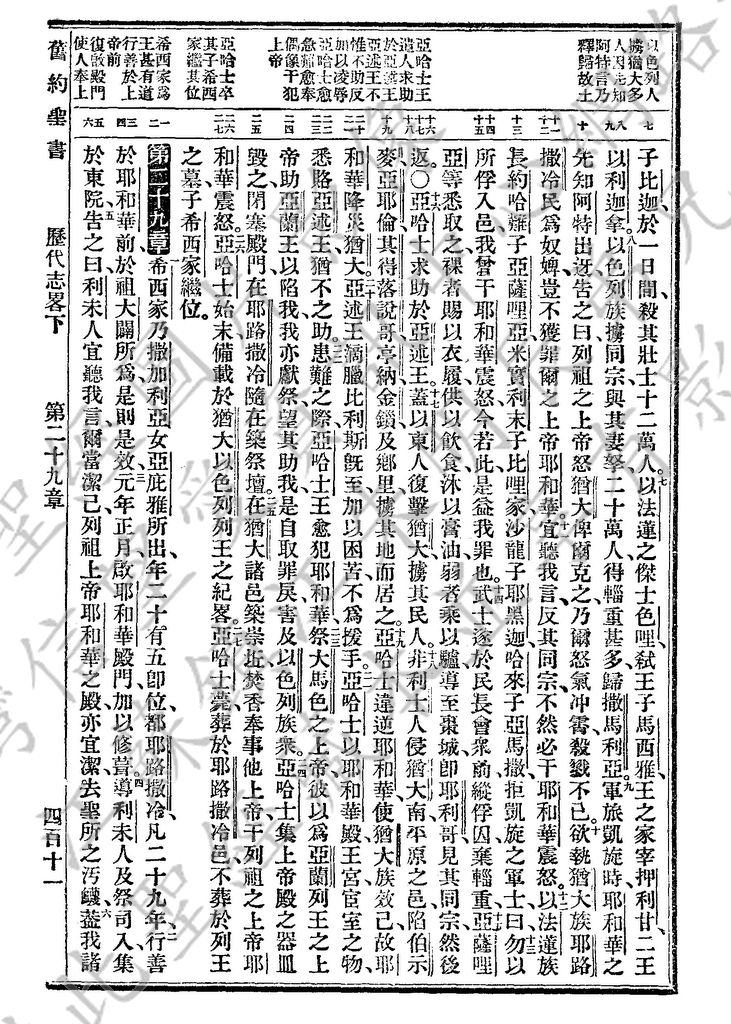 以色列人
擄猶大多
人因先知
阿特言乃
釋歸故土
亞哈士王
遣人求助
於亞述王
亞述王不
惟不助反
加以凌辱
亞哈士愈
急耀愈奉
偶像干犯
上帝
亞哈士卒
其子希西
家繼其位
希西家爲
王甚有道
行善於上
帝前
復啟殿門
使人奉上
七
八
九
十
十一
十二
十三
十四
十五
十六
十七
十八
十九
二十
二一
二二
二三
二四
二五
二六
二七
一
二
三
四
五
六
子比迦於一日間殺其壯士十二萬人七以法蓮之傑士色哩弒王子馬西雅王之家宰押利甘二王
以利迦拿八以色列族擄同宗與其妻孥二十萬人得輜重甚多歸撒馬利亞九軍旅凱旋時耶和華之
先知阿特出迓告之曰列祖之上帝怒猶大俾爾克之乃爾怒氣冲霄殺戮不已十欲執猶大族耶路
撒冷民爲奴婢豈不獲罪爾之上帝耶和華十一宜聽我言反其同宗不然必干耶和華震怒十二以法蓮族
長約哈難子亞薩哩亞米實利末子比哩家沙龍子耶黑迦哈來子亞馬撒拒凱旋之軍士曰十三勿以
所俘入邑我曾干耶和華震怒今若此是益我罪也十四武士遂於民長會衆前縱俘囚棄輜重十五亞薩哩
亞等悉取之裸者賜以衣履供以飲食沐以膏油弱者乘以驢導至棗城卽耶利哥見其同宗然後
返〇十六亞哈士求助於亞述王十七蓋以東人復擊猶大擄其民人十八非利士人侵猶大南平原之邑陷伯示
麥亞耶倫其得落說哥亭納金鎖及鄉里據其地而居之十九亞哈士違逆耶和華使猶大族效己故耶
和華降災猶大二十亞述王滴臘比利斯旣至加以困苦不爲援手二一亞哈士以耶和華殿王宮宦室之物
悉賂亞述王猶不之助二二患難之際亞哈士王愈犯耶和華二三祭大馬色之上帝彼以爲亞蘭列王之上
帝助亞蘭王以陷我我亦獻祭望其助我是自取罪戾害及以色列族衆二四亞哈士集上帝殿之器皿
毀之閉塞殿門在耶路撒冷隨在築祭壇二五在猶大諸邑築崇坵焚香奉事他上帝干列祖之上帝耶
和華震怒二六亞哈士始末備載於猶大以色列列王之紀畧二七亞哈士薨葬於耶路撒冷邑不葬於列王
之墓子希西家繼位
第二十九章一希西家乃撒加利亞女亞庇雅所出年二十有五卽位都耶路撒冷凡二十九年二行善
於耶和華前於祖大闢所爲是則是效三元年正月啟耶和華殿門加以修葺四導利未人及祭司入集
於東院五告之曰利未人宜聽我言爾當潔己列祖上帝耶和華之殿亦宜潔去聖所之汚衊六蓋我諸
舊約聖書
歷代志畧下
第二十九章
四百十一